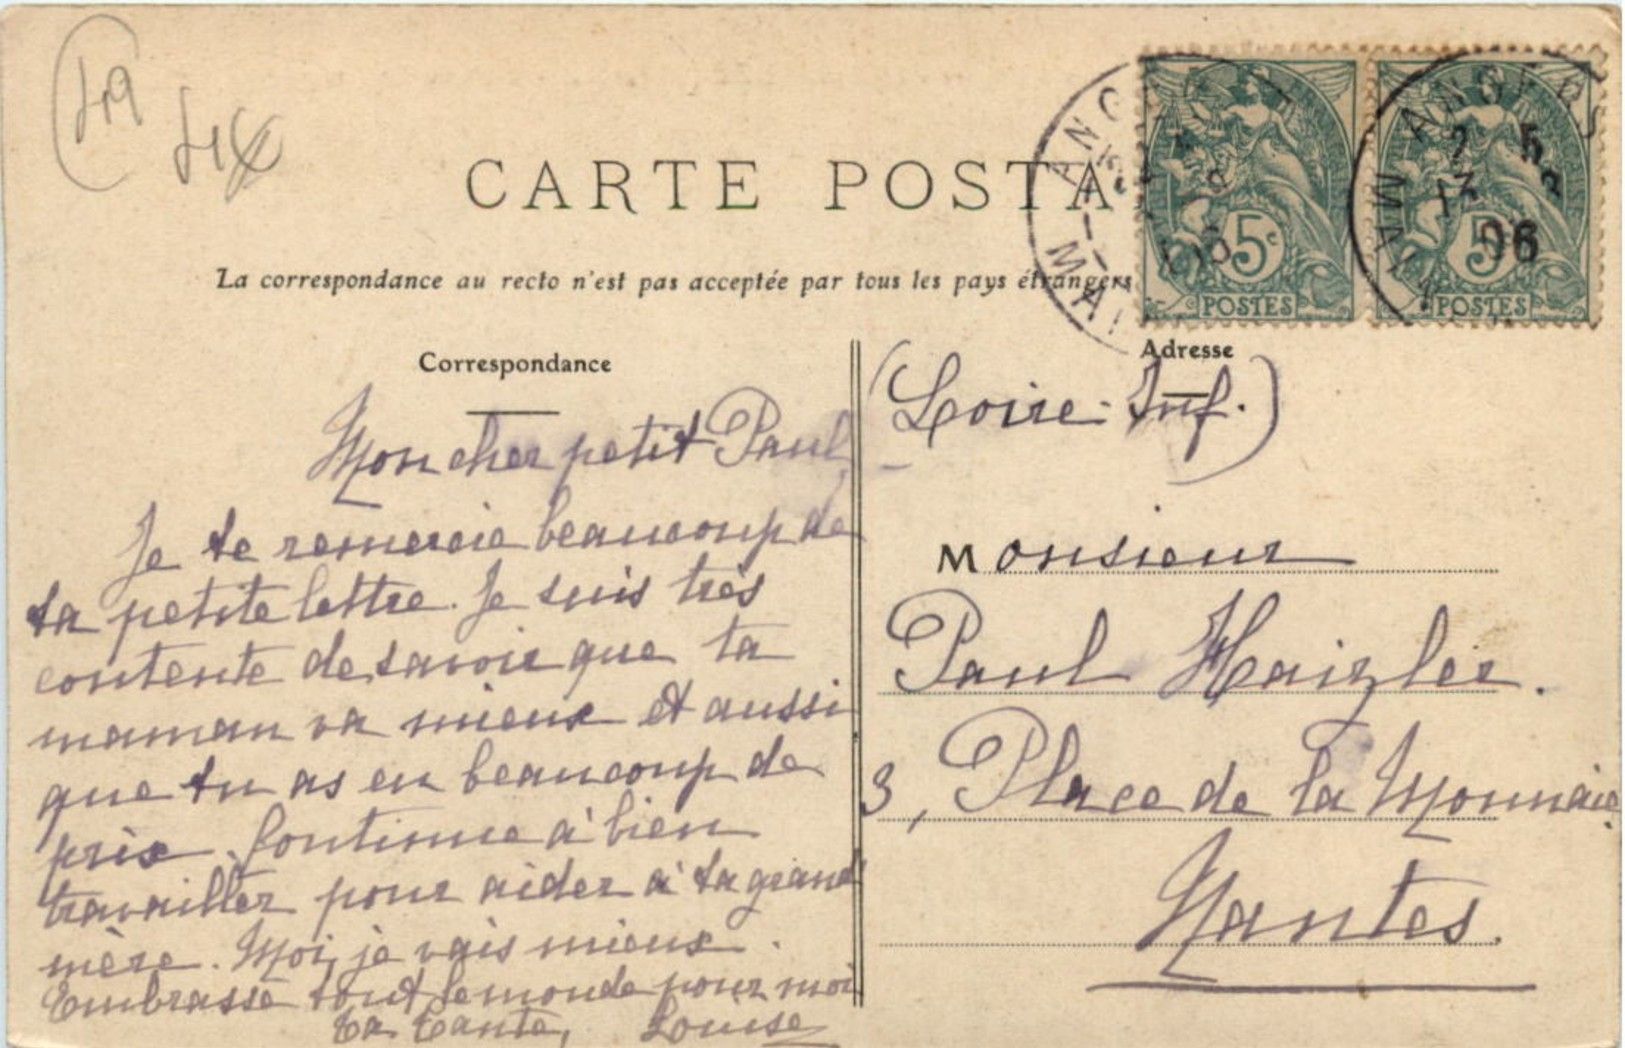 49
CARTE POSTA
La correspondance au recto n'est pas acceptée par tous les pays étrangers
ANGERS
MAI
5c
POSTES
ANGERS
2 5
17 3
06
5c
POSTES
Correspondance
Mon cher petit Paul,
Je te remercie beaucoup de
ta petite lettre. Je suis très
contente de savoir que ta
maman va mieux et aussi
que tu as eu beaucoup de
prix. Continue à bien
travailler pour aider à ta grand
mère. Moi, je vais mieux.
Embrasse tout le monde pour moi
Ta tante, Louise
Adresse
(Loire-Inf.)
Monsieur
Paul Haizler.
3, Place de la Monnaie
Nantes.